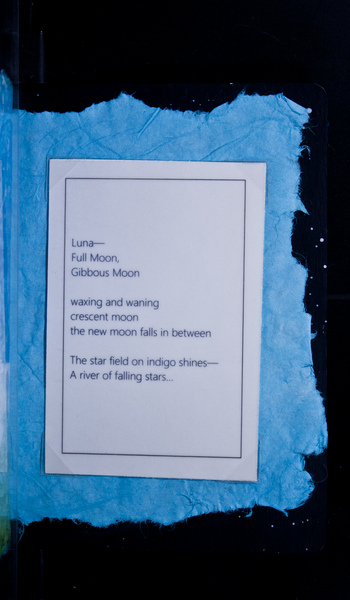 Luna—
Full Moon,
Gibbous Moon
waxing and waning
crescent moon
the new moon falls in between
The star field on indigo shines—
A river of falling stars...